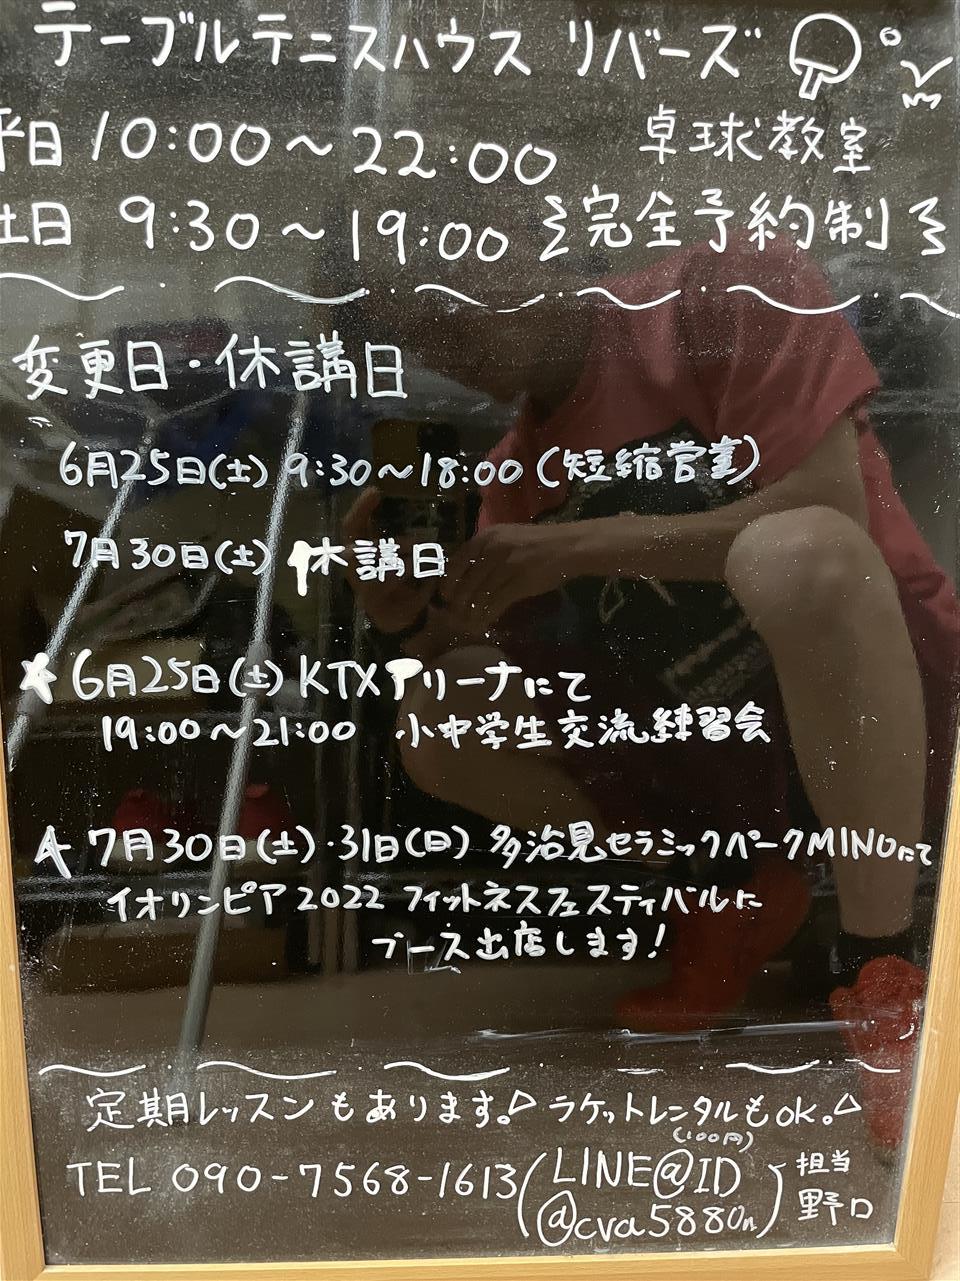 テーブルテニスハウス リバーズ
平日 10:00～22:00 卓球教室
土日 9:30～19:00 完全予約制
変更日・休講日
6月25日(土) 9:30～18:00 (短縮営業)
7月30日(土) 休講日
☆ 6月25日(土) KTXアリーナにて
19:00～21:00 小中学生交流練習会
☆ 7月30日(土)・31日(日) 多治見セラミックパークMINOにて
イオリンピア2022 フィットネスフェスティバルに
ブース出店します!
定期レッスンもあります。 ラケットレンタルもOK。
(100円)
TEL 090-7568-1613 (LINE@ID
@cva5880n) 担当
野口